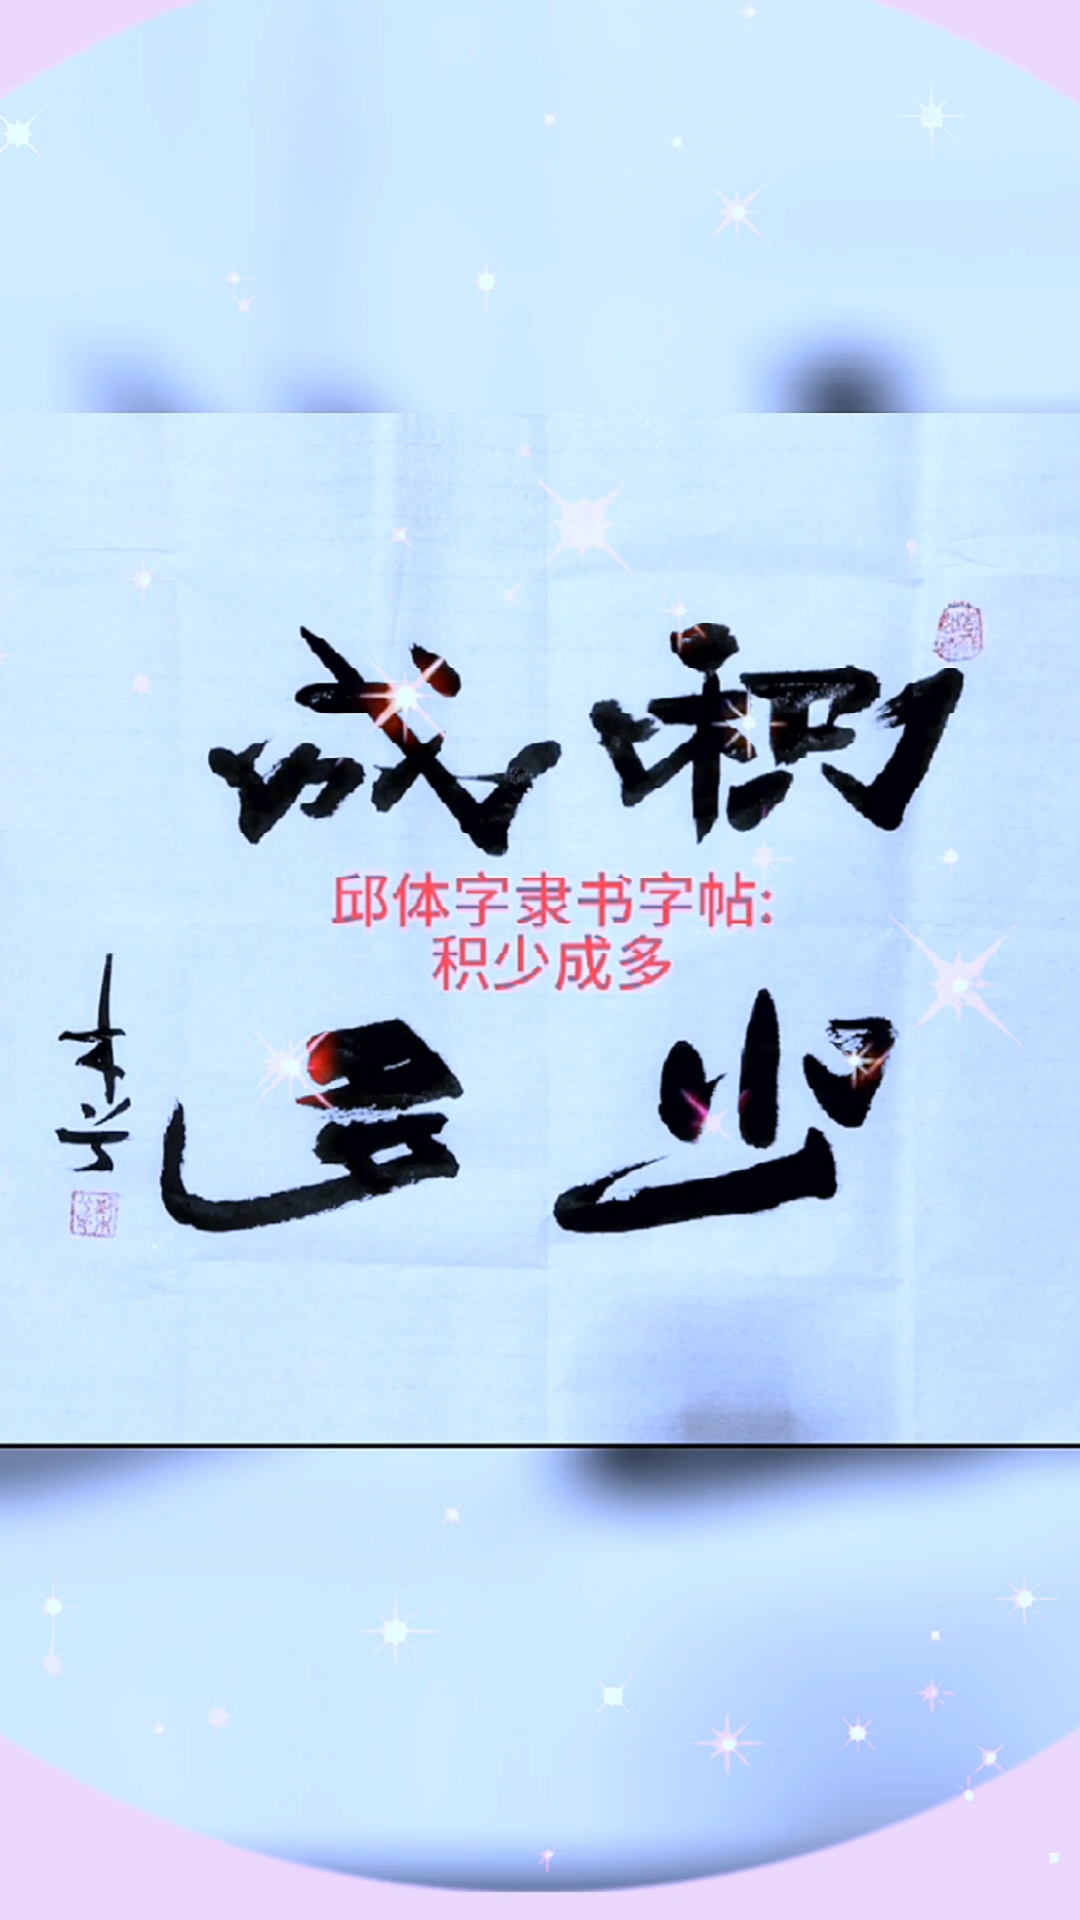 积少
成多
邱体字隶书字帖:
积少成多